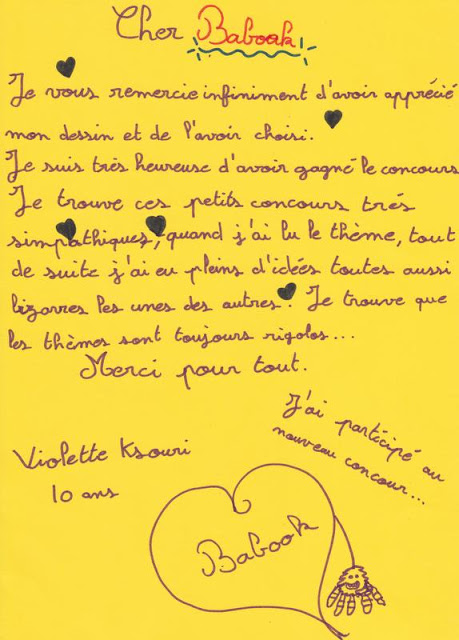 Cher Babook
Je vous remercie infiniment d'avoir apprécié
mon dessin et de l'avoir choisi.
Je suis très heureuse d'avoir gagné le concours
Je trouve ces petits concours trés
simpathiques, quand j'ai lu le thème, tout
de suite j'ai eu pleins d'idées toutes aussi
bizarres les unes des autres. Je trouve que
les thèmes sont toujours rigolos...
Merci pour tout.
J'ai participé au
nouveau concour...
Violette Ksouri
10 ans
Babook